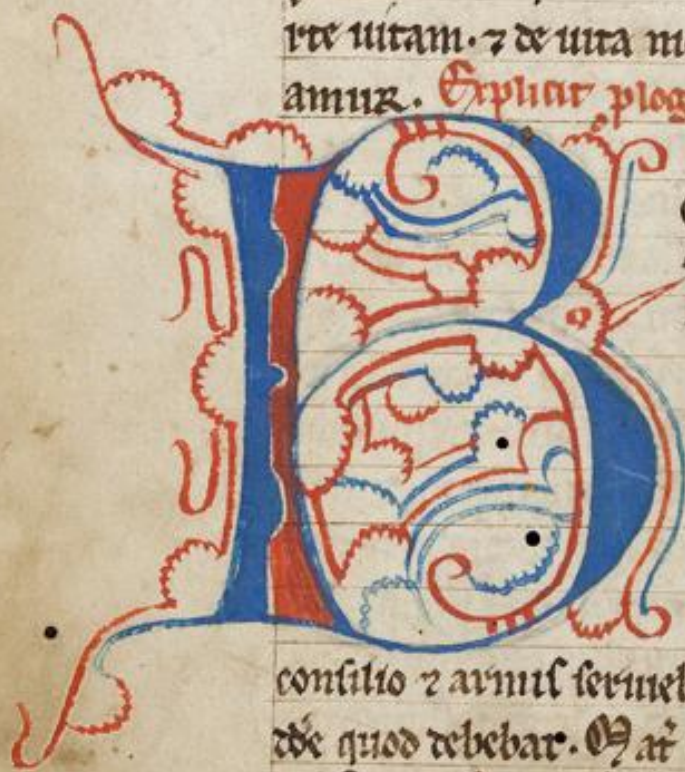 rte uitam. ⁊ de uita m
amur. Explicit plog
B
consilio ⁊ armis seruieb
de quod debebat. Mat